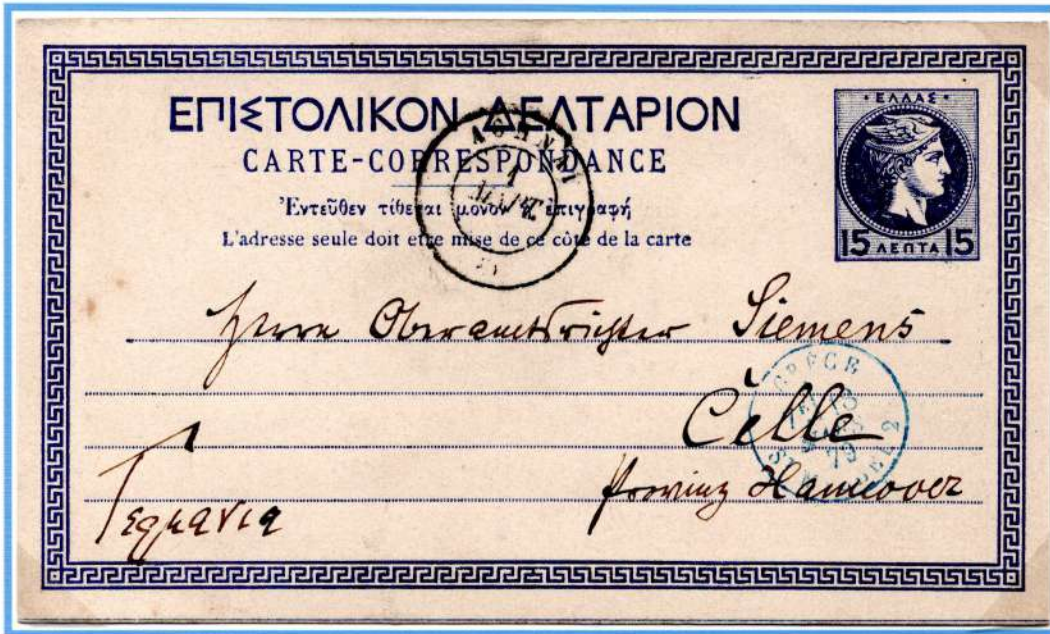 ΕΠΙΣΤΟΛΙΚΟΝ ΔΕΛΤΑΡΙΟΝ
CARTE-CORRESPONDANCE
Ἐντεῦθεν τίθεται μόνον ἡ ἐπιγραφή
L'adresse seule doit etre mise de ce côté de la carte
·ΕΛΛΑΣ·
15 ΛΕΠΤΑ 15
ΑΘΗΝΑΙ
1
Herrn Oberamtsrichter Siemens
GRÈCE
Celle
79
Provinz Hannover
Γερμανια